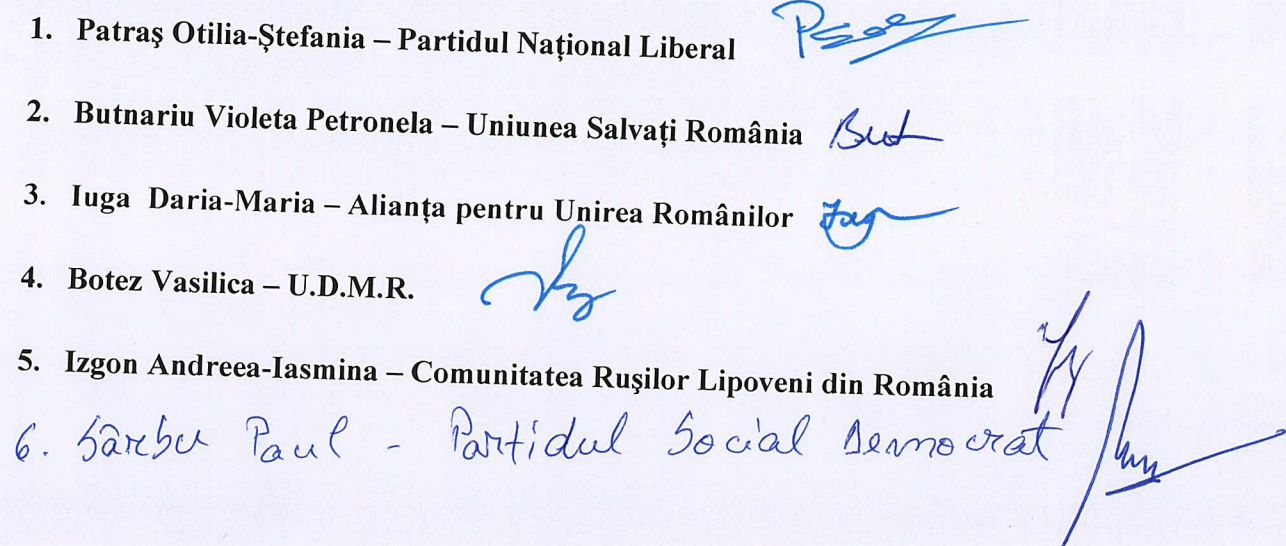 1. Patraş Otilia-Ştefania – Partidul Național Liberal
2. Butnariu Violeta Petronela – Uniunea Salvați România But
3. Iuga Daria-Maria – Alianța pentru Unirea Românilor
4. Botez Vasilica – U.D.M.R.
5. Izgon Andreea-Iasmina – Comunitatea Ruşilor Lipoveni din România
6. Sârbu Paul - Partidul Social Democrat